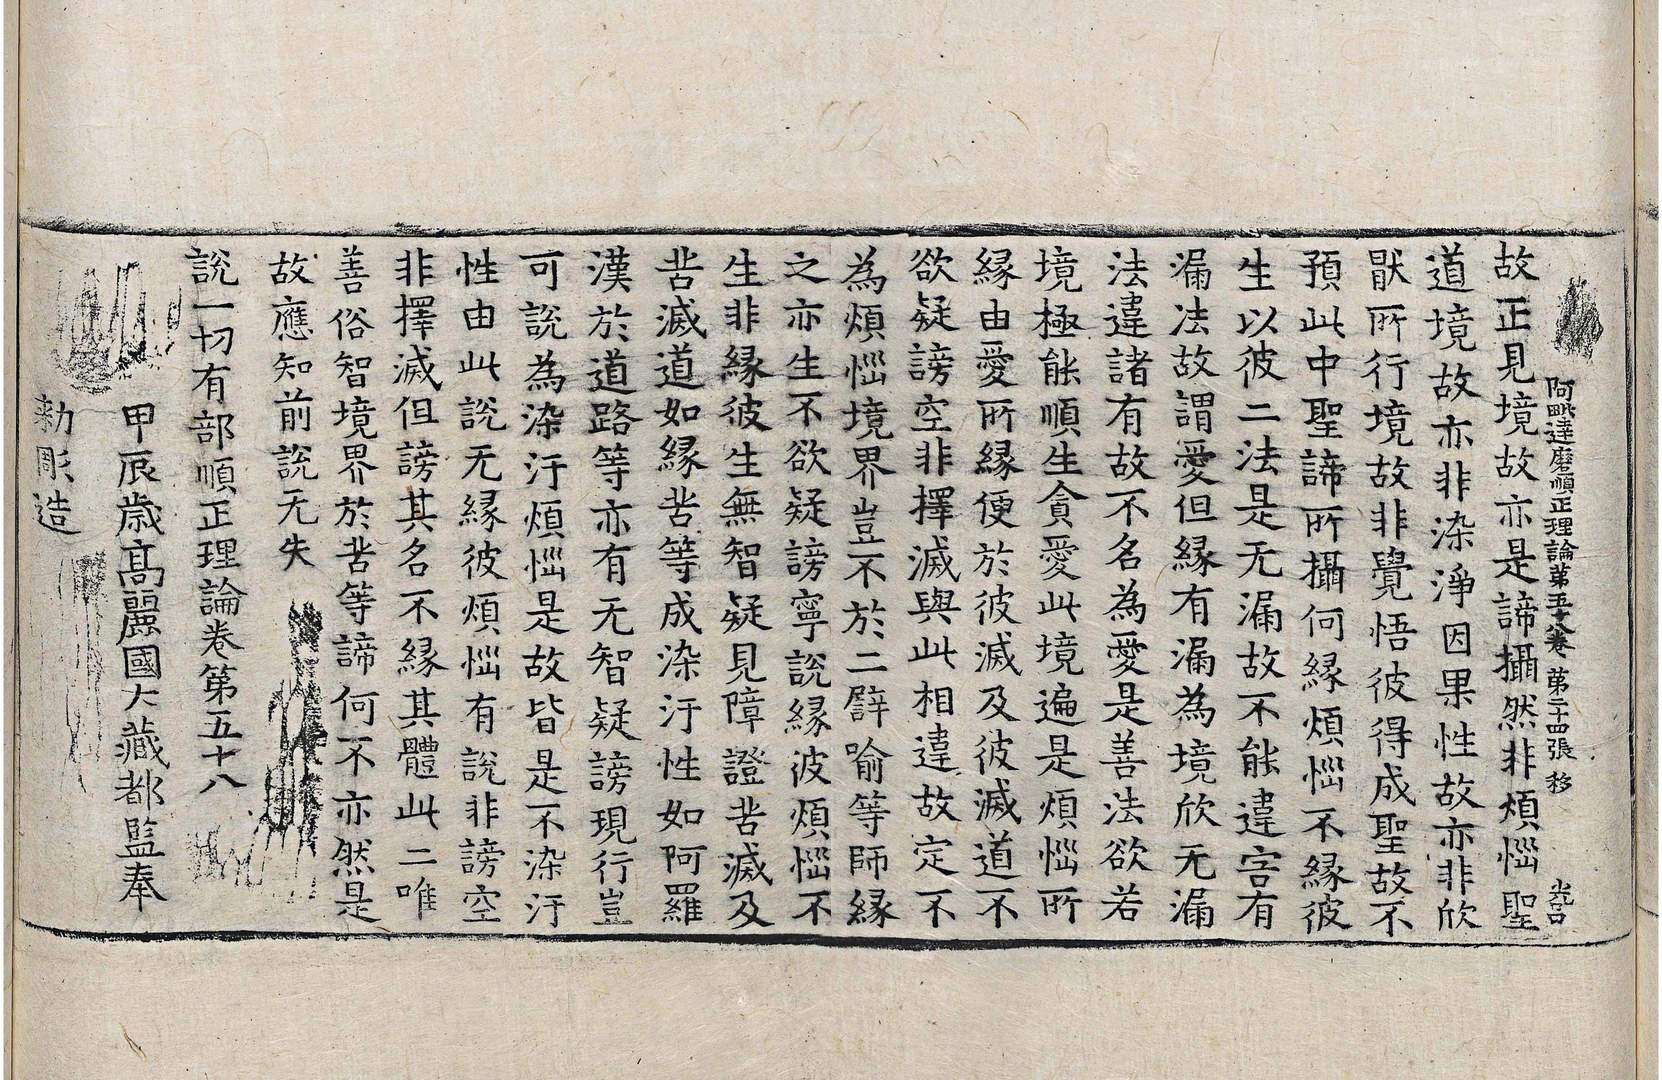 阿毗達磨順正理論第五十八卷 第二十四張 移
故正見境故亦是諦攝然非煩惱聖
道境故亦非染淨因果性故亦非欣
猒所行境故非覺悟彼得成聖故不
預此中聖諦所攝何緣煩惱不緣彼
生以彼二法是无漏故不能違害有
漏法故謂愛但緣有漏為境欣无漏
法違諸有故不名為愛是善法欲若
境極能順生貪愛此境遍是煩惱所
緣由愛所緣便於彼滅及彼滅道不
欲疑謗空非擇滅與此相違故定不
為煩惱境界豈不於二譬喻等師緣
之亦生不欲疑謗寧說緣彼煩惱不
生非緣彼生無智疑見障證苦滅及
苦滅道如緣苦等成染汙性如阿羅
漢於道路等亦有无智疑謗現行豈
可說為染汙煩惱是故皆是不染汙
性由此說无緣彼煩惱有說非謗空
非擇滅但謗其名不緣其體此二唯
善俗智境界於苦等諦何不亦然是
故應知前說无失
說一切有部順正理論卷第五十八
甲辰歲高麗國大藏都監奉
勅彫造